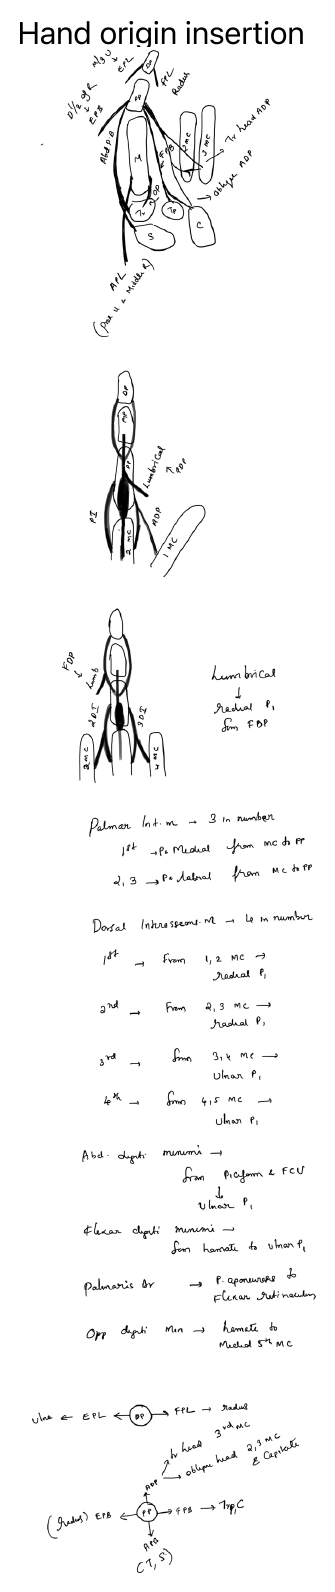 Hand origin insertion
M/3 U
EPL
DP
FPL
Radius
D1/2 of R
EPB
PP
Abd P B
M
FPB
2 MC
3 MC
Tr head ADP
oblique ADP
OP
Tr
Tp
S
C
APL
DP
MP
PP
Lumbrical
FDP
PI
ADP
2 MC
1 MC
FDP
Lumb
2DI
3DI
2 MC
4 MC
Lumbrical
radial P1
from FDP
Palmar Int. m → 3 in number
1st → Medial from MC to PP
2, 3 → lateral from MC to PP
Dorsal Interosseous M → 4 in number
1st → From 1, 2 MC →
radial P1
2nd → From 2, 3 MC →
radial P1
3rd → from 3, 4 MC →
Ulnar P1
4th → from 4, 5 MC →
Ulnar P1
Abd. digiti minimi →
from Pisiform & FCU
↓
Ulnar P1
Flexar digiti minimi →
from hamate to ulnar P1
Palmaris Br → P. aponeurosis to
Flexar retinaculum
Opp digiti Min → hamate to
Medial 5th MC
ulna ← EPL ← DP → FPL → radius
tr head 3rd MC
ADP → oblique head 2,3 MC
& Capitate
(radius) EPB ← PP → FPB → Trp, C
APB
(T, S)